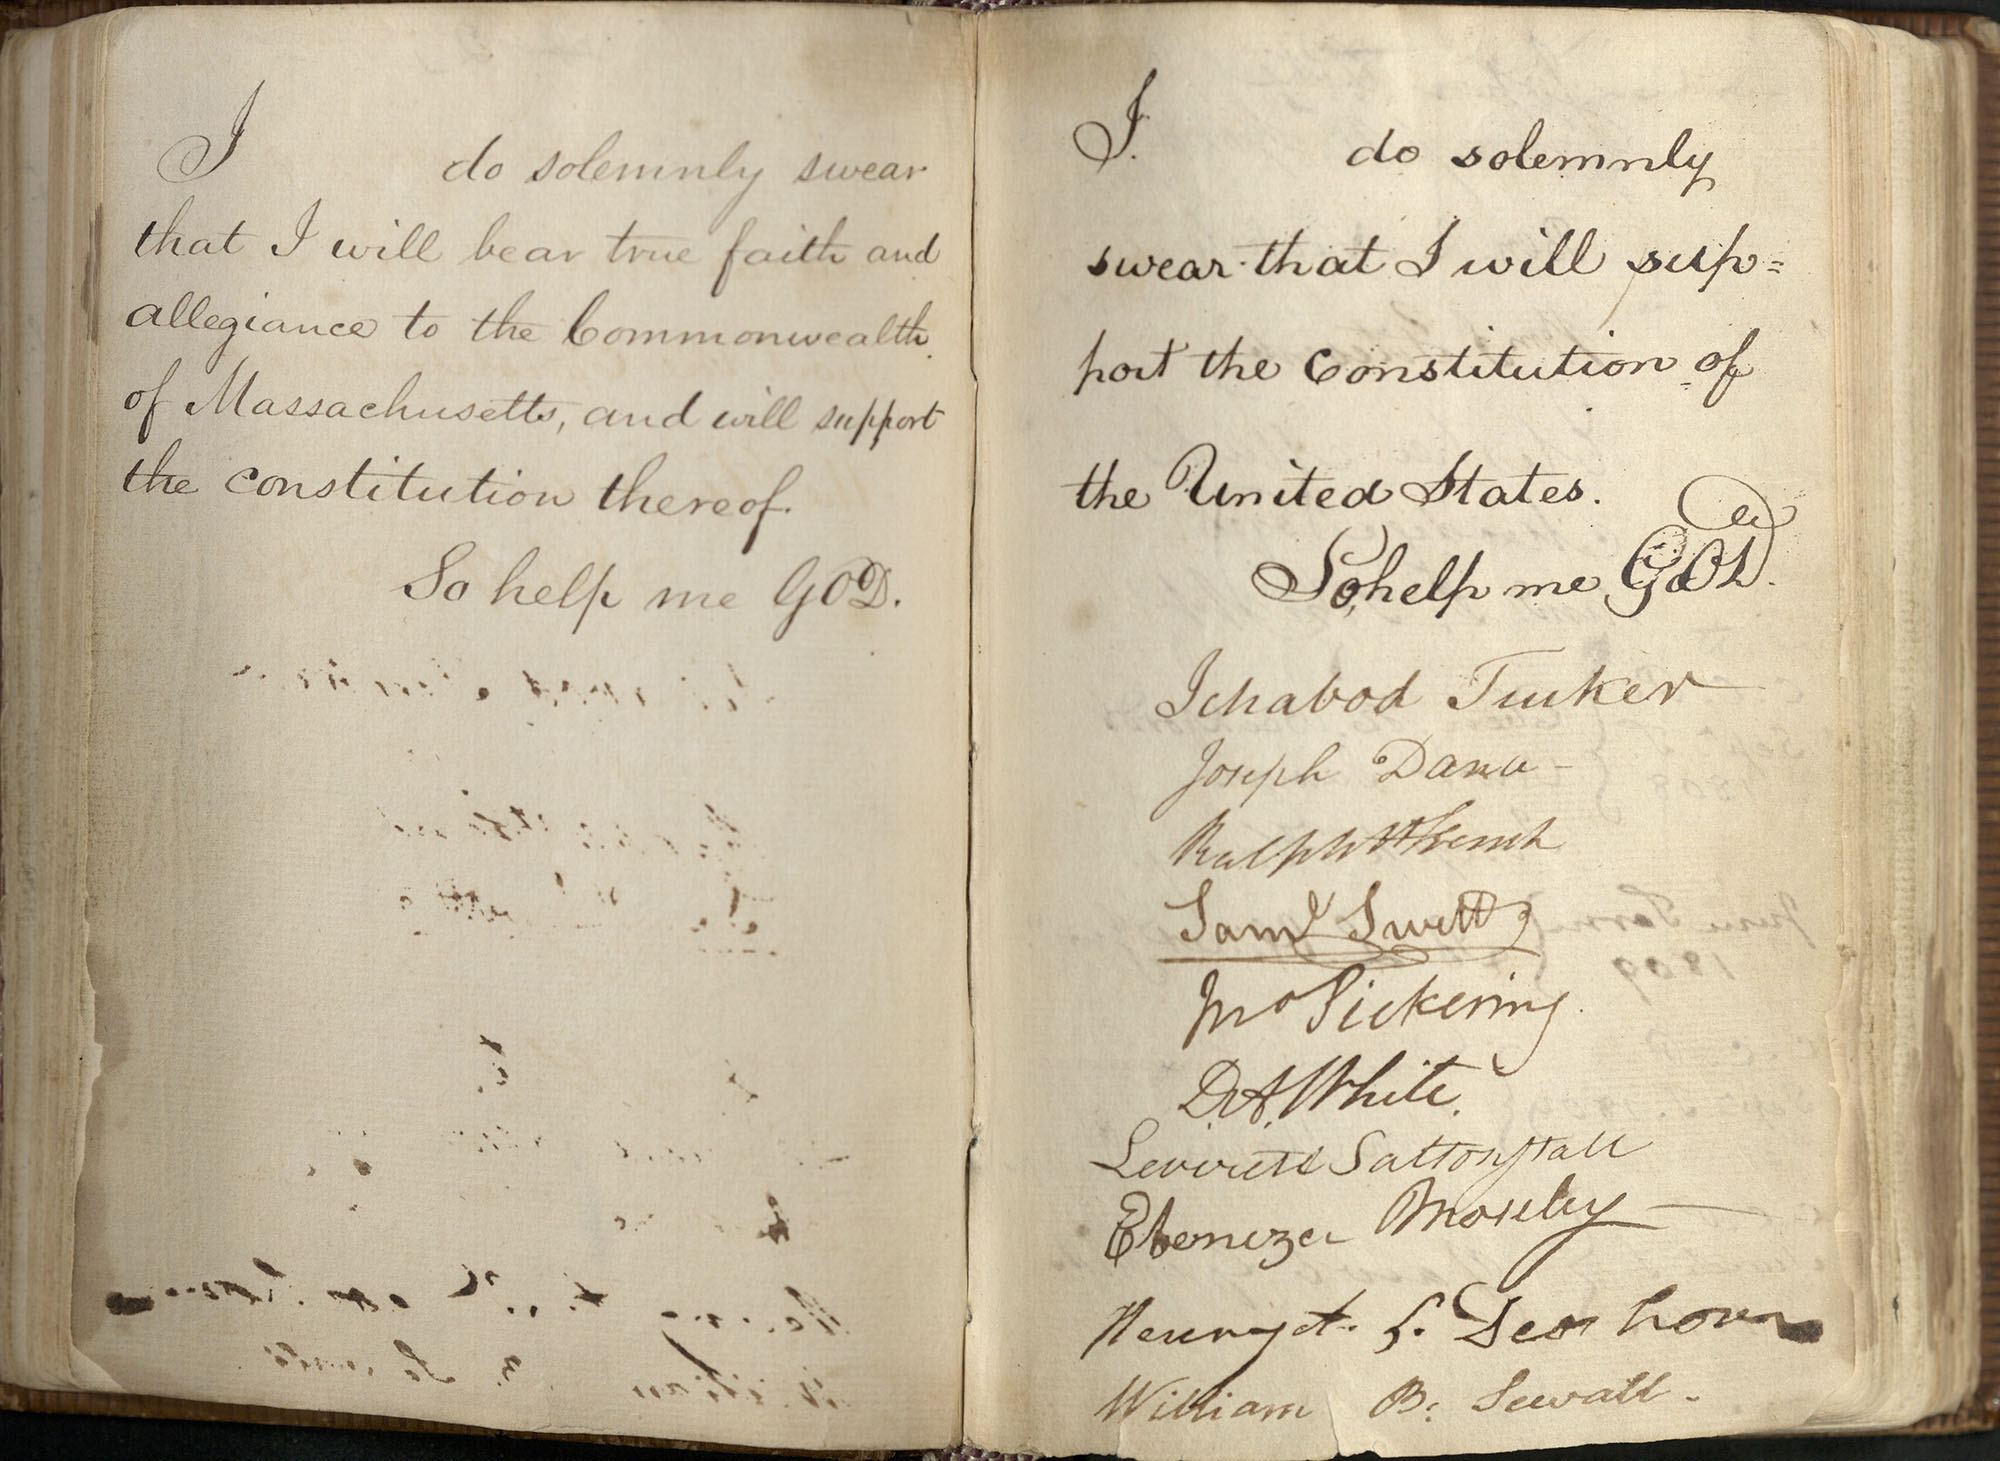 I do solemnly swear
that I will bear true faith and
allegiance to the Commonwealth
of Massachusetts, and will support
the constitution thereof.
So help me GOD.
I. do solemnly
swear that I will sup=
port the Constitution of
the United States.
So help me GOD.
Ichabod Tucker
Joseph Dana
Ralph H French
Saml Swett
Jno Pickering
D. A. White.
Leverett Saltonstall
Ebenezer Moseley
Henry A. S. Dearborn
William B. Sewall.
June Term
1809